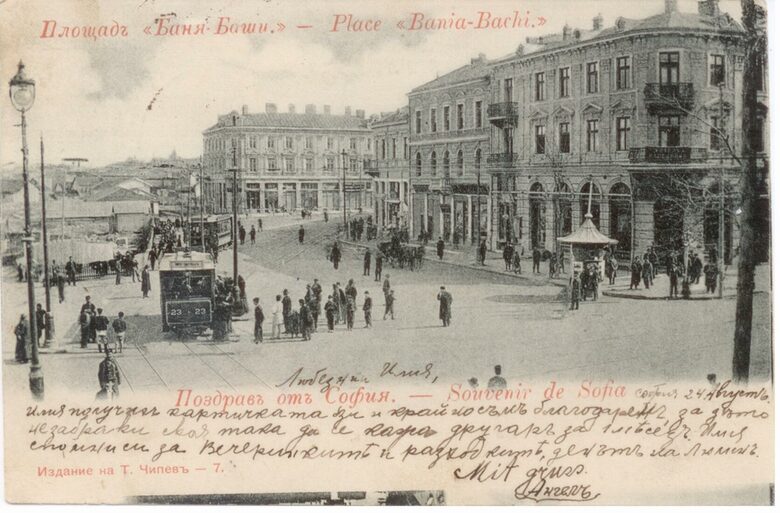 Площадъ «Баня-Баши.» — Place «Bania-Bachi.»
23 23
Любезни Илия,
Поздравъ отъ София. — Souvenir de Sofia
София 24 Августъ
Илия получихъ картичката ти и крайносъмъ благодаренъ за дето
незабраки своя така да се кажа другаръ за Илия
спомниси за Вечеринкитѣ и разходкитѣ, денътъ на
Mit gruss
Ангелъ
Издание на Т. Чипевъ — 7.